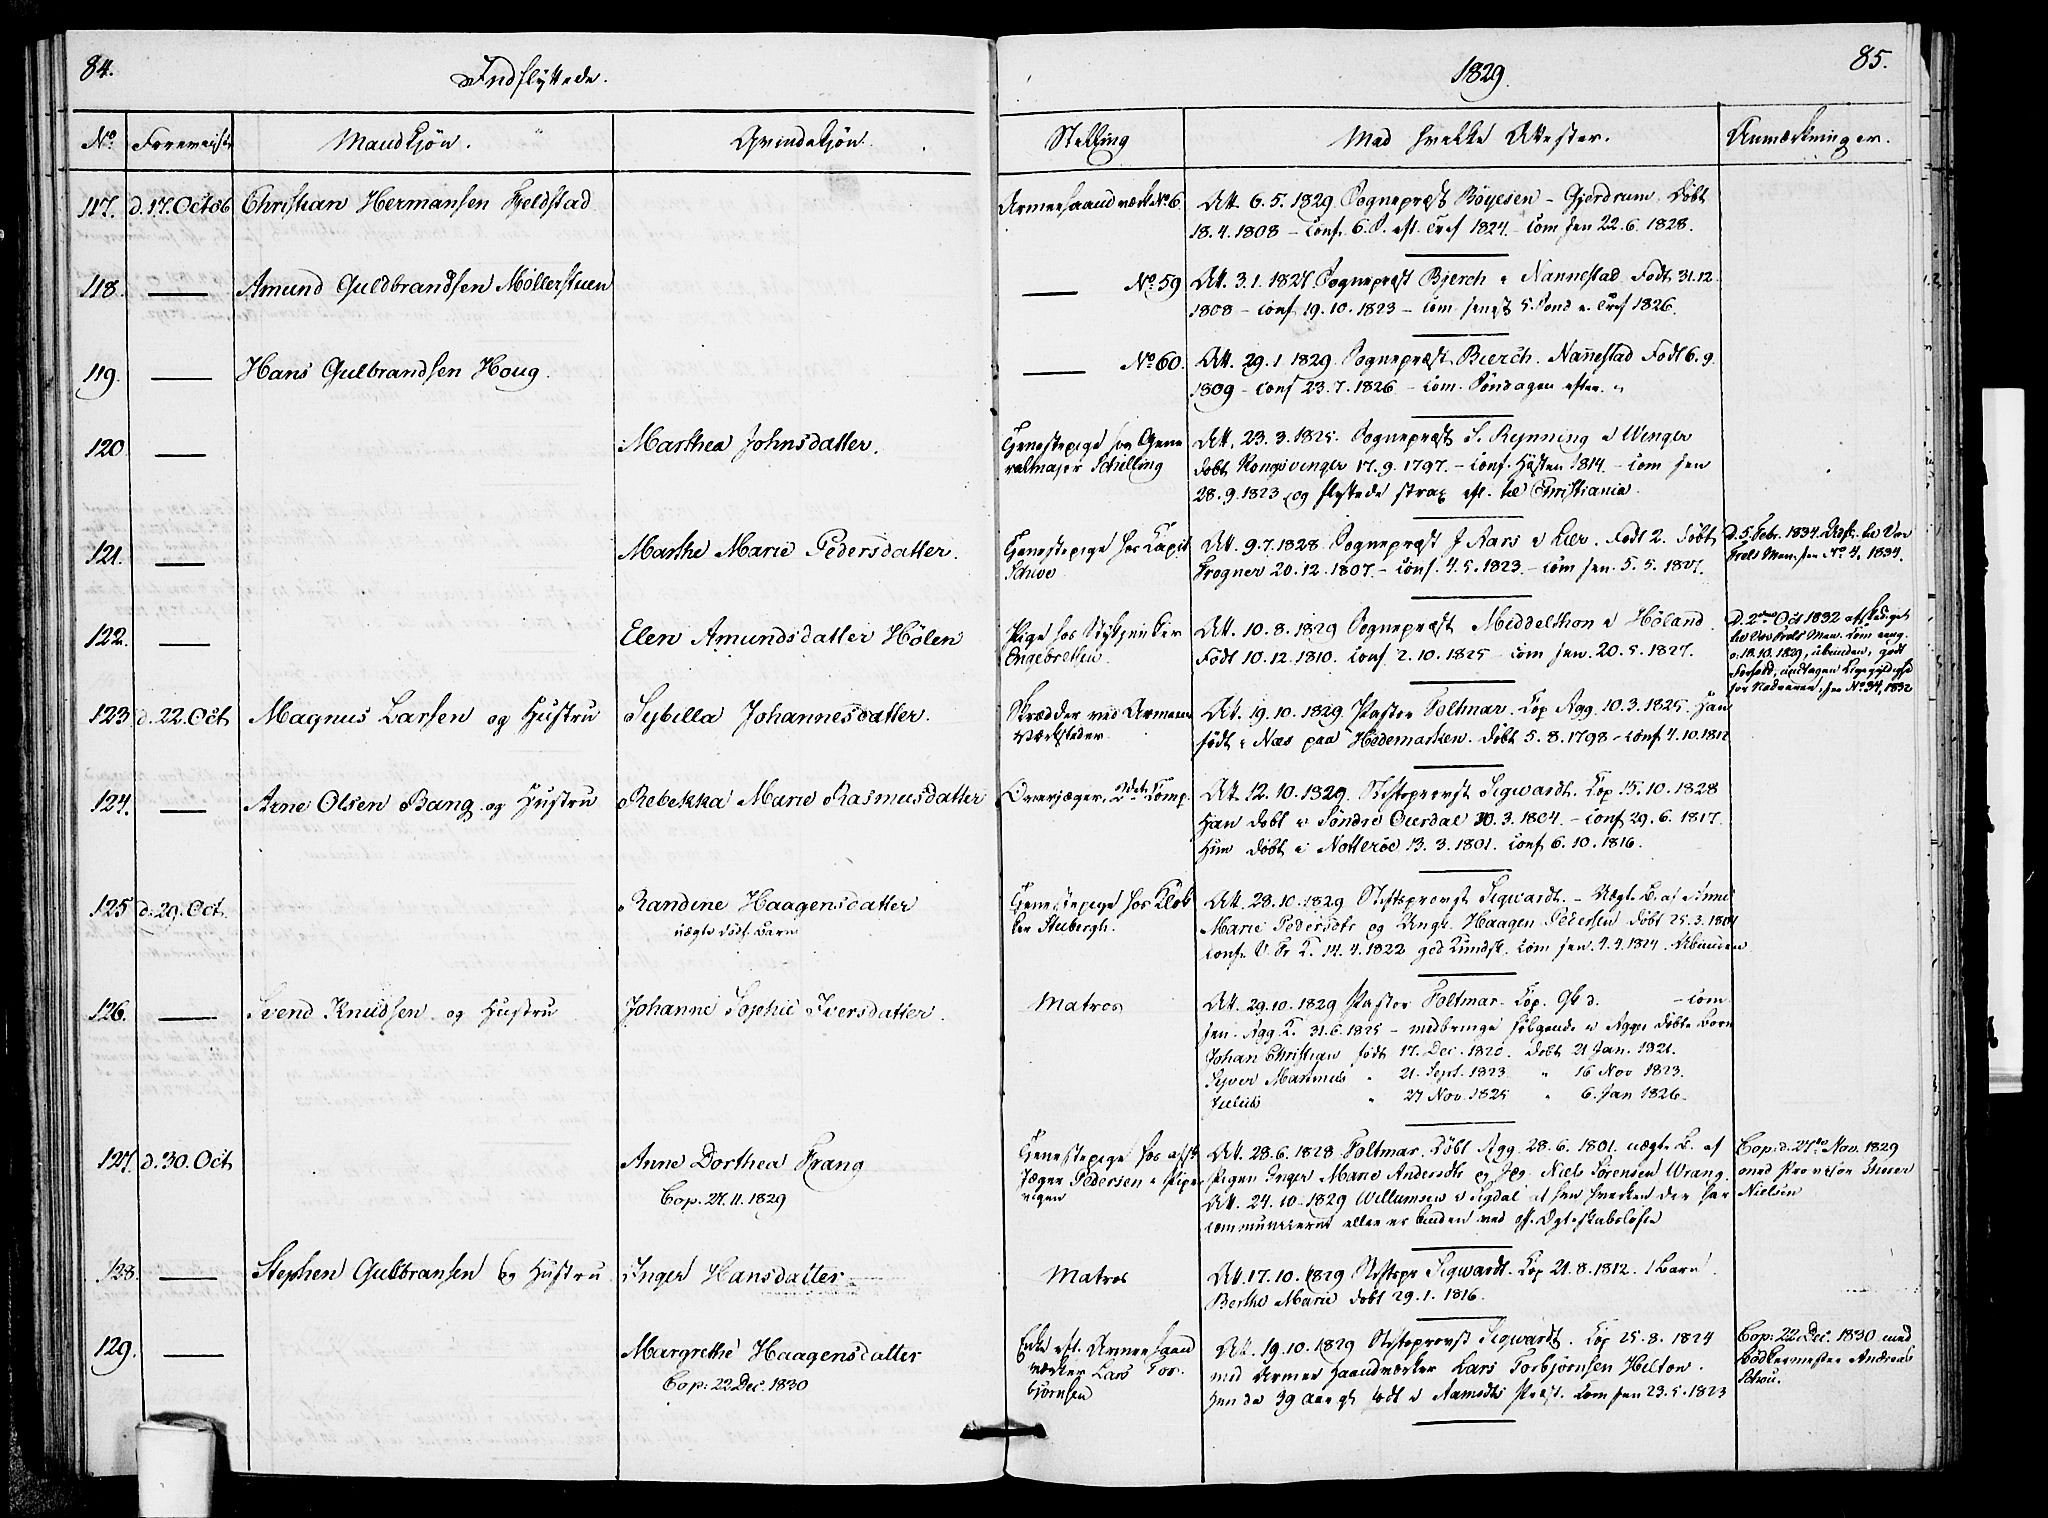 84.
Indflyttede.
1829.
85.
No
Foreviist
Mandkjön.
Qvindekjön.
Stilling
Med hvilke Attester.
Anmærkninger.
117. d. 17. Octob Christian Hermansen Fjeldstad
Armeehaandværk No 6
Att. 6. 5. 1829. Sognepræst Böyesen - Gjerdrum. Döbt
18. 4. 1808 - Conf. 6. S. eft. Tref 1824. - Com sen 22. 6. 1828.
118. — Amund Guldbrandsen Möllerstuen
— No. 59
Att. 3. 1. 1827. Sognepræst Bjerch i Nannestad Födt 31. 12.
1808 - Conf 19. 10. 1823 - Com senest 5. Sönd e. Tref 1826.
119. — Hans Gulbrandsen Houg.
— No. 60.
Att. 29. 1. 1829. Sognepræst Bierch. Nañestad Födt 6. 9.
1809 - Conf 23. 7. 1826 - Com. Söndagen efter.
120 —
Marthea Johnsdatter.
Tjenestepige hos Gene
ralmajor Schilling
Att. 23. 3. 1825. Sognepræst S. Rynning i Winger
döbt Kongsvinger 17. 9. 1797. - Conf. Hösten 1814. - Com sen
28. 9. 1823 og flyttede strax eft. til Christiania.
121. —
Marthe Marie Pedersdatter.
Tjenestepige hos Capit
Schive
Att. 9. 7. 1828 Sognepræst J Aars i Lier. Födt 2. Döbt
Frogner 20. 12. 1807. - Conf. 4. 5. 1823. - Com sen. 5. 5. 1827.
d. 5. Febr. 1834. Att. til Vor
Frels Men. sen No 4, 1834.
122. —
Elen Amundsdatter Hölen
Pige hos Stykjunker
Engebretsen.
Att. 10. 8. 1829 Sognepræst Middelthon i Höland.
Födt 10. 12. 1810. Conf 2. 10. 1825 - Com sen. 20. 5. 1827.
D. 2den Oct 1832 afskediget
til Vor Frels Men. Com eeng.
18. 10. 1829, ubunden, godt
Forhold, undtagen Ligegyldighed
for Nadveren, sen No 34, 1832
123 d. 22. Oct Magnus Larsen og Hustru Sybilla Johannesdatter.
Skrædder ved Armeens
Værksteder.
Att. 19. 10. 1829 Pastor Foltmar. Cop Agg. 10. 3. 1825. Han
födt i Næs paa Hedemarken. Döbt 5. 8. 1798 - Conf 4. 10. 1812
124. — Arne Olsen Bang og Hustru Rebekka Marie Rasmusdatter
Overjæger. 2det Comp.
Att. 12. 10. 1829. Stiftsprovst Sigwardt. Cop 15. 10. 1828
Han döbt i Söndre Ourdal 30. 3. 1804. - Conf 29. 6. 1817.
Hun döbt i Nötteröe 13. 3. 1801. Conf 6. 10. 1816.
125 d. 29. Oct.
Randine Haagensdatter
uægte födt Barn
Tjenestepige hos Klok
ker Stubergh.
Att. 28. 10. 1829 Stiftsprovst Sigwardt. - Uægte B. af Anne
Marie Pedersdtr og Ungk. Haagen Pedersen döbt 25. 3. 1807
Conf. V. Fr K. 14. 4. 1822 god Kundsk. Com sen. 4. 4. 1824. Ubunden
126. — Svend Knudsen og Hustru Johanne Sophie Iversdatter.
Matros
Att. 29. 10. 1829 Pastor Foltmar. Cop. Gbd. - Com
sen. Agg K. 31. 6. 1825 - medbringe fölgende i Agge döbte Börn
Johan Christian födt 17. Dec. 1820. döbt 21 Jan. 1821.
Syver Martinus " 21. Sept. 1823 " 16 Nov 1823.
Julius " 27 Nov. 1825 " 6. Jan 1826.
127. d. 30. Oct
Anne Dorthea Frang
Cop. 27. 11. 1829
Tjenestepige hos afsk
Jæger Pedersen i Piper
vigen
Att. 28. 6. 1828 Foltmar. Döbt Agg. 28. 6. 1801. uægte B. af
Pigen Inger Marie Andersdtr og Jæg. Niels Sörensen Wrang.
Att. 24. 10. 1829 Willumsen i Sigdal at hun hverken der har
communiceret eller er bunden ved off. Ægteskabslöfte
Cop. d. 27de Nov. 1829
med Provisor Iver
Nielsen
128. — Stephen Gulbransen og Hustru Inger Hansdatter
Matros
Att. 17. 10. 1829 Stiftspr Sigwardt. Cop 21. 8. 1812. 1 Barn
Berthe Marie döbt 29. 1. 1816.
129. —
Margrethe Haagensdatter
Cop. 22 Dec. 1830
Enke eft. Armeehaand
værker Lars Tor-
björnsen
Att. 19. 10. 1829 Stiftsprovst Sigwardt. Cop 25. 8. 1824
med Armee haandværker Lars Torbjörnsen Hilton.
Hun da 39 Aar gl. födt i Aamodts Præst. Com sen 23. 5. 1823
Cop. 22 Dec. 1830 med
Bödkermester Andreas